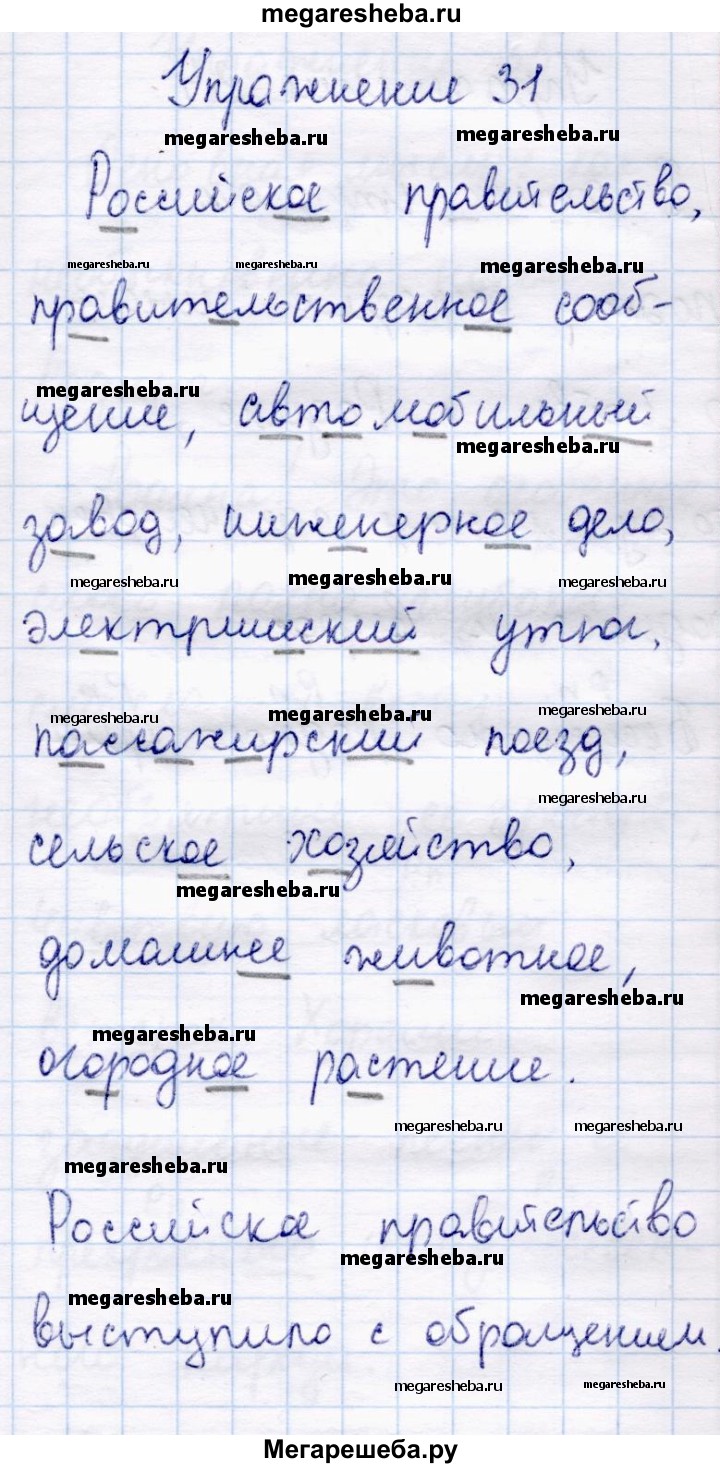 megaresheba.ru
Упражнение 31
megaresheba.ru megaresheba.ru
Российское правительство,
megaresheba.ru megaresheba.ru megaresheba.ru
правительственное сооб-
megaresheba.ru
щение, автомобильный
megaresheba.ru
завод, инженерное дело,
megaresheba.ru megaresheba.ru megaresheba.ru
электрический утюг,
megaresheba.ru megaresheba.ru megaresheba.ru
пассажирский поезд,
megaresheba.ru
сельское хозяйство,
megaresheba.ru
домашнее животное,
megaresheba.ru
megaresheba.ru
огородное растение.
megaresheba.ru megaresheba.ru
megaresheba.ru
Российское правительство
megaresheba.ru
megaresheba.ru
выступило с обращением.
megaresheba.ru megaresheba.ru
Мегарешеба.ру